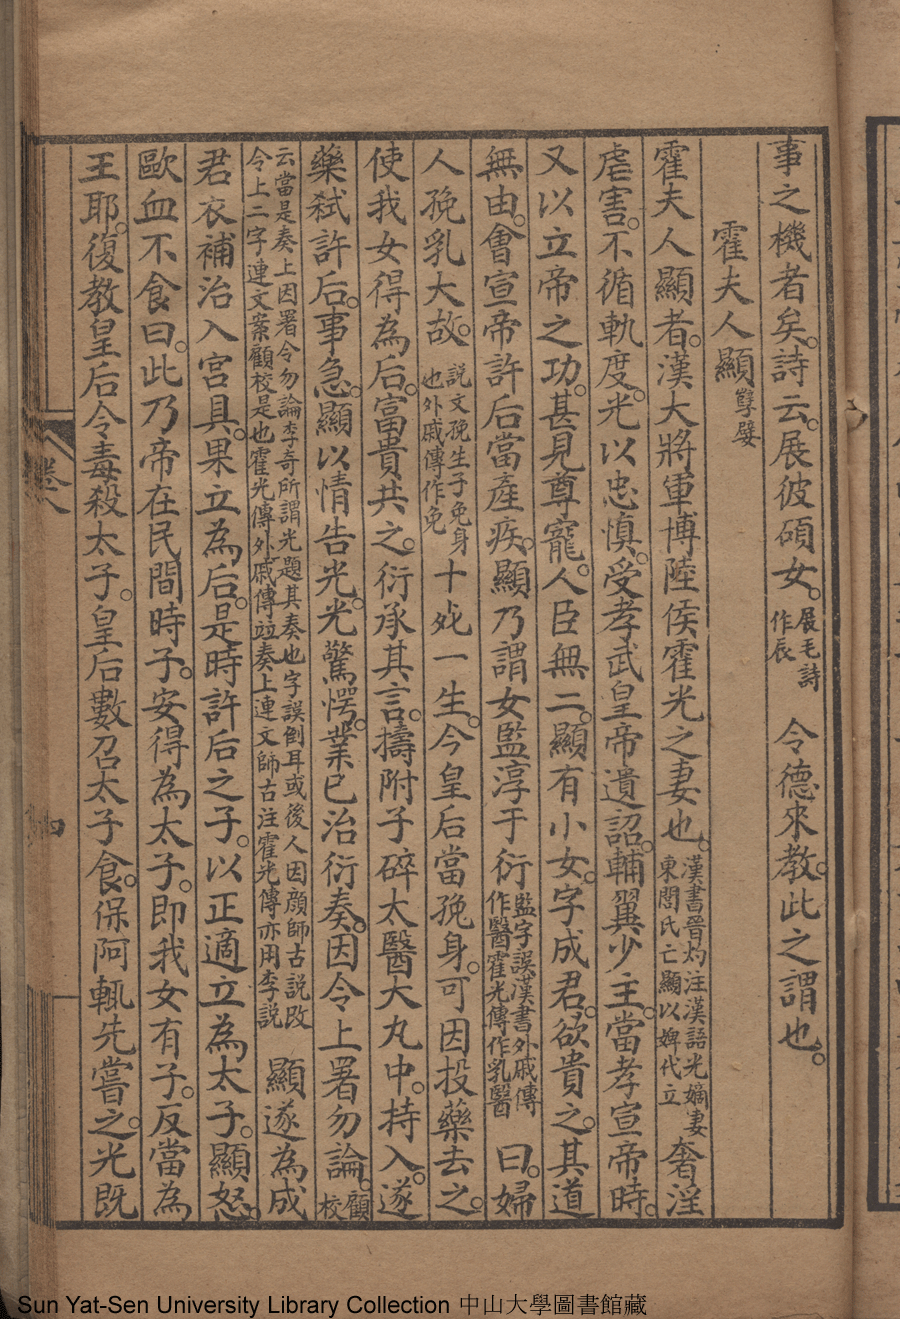 事之機者矣。詩云。展彼碩女。展毛詩作辰 令德來教。此之謂也。
霍夫人顯 孽嬖
霍夫人顯者。漢大將軍博陸侯霍光之妻也。漢書晉灼注漢語光嫡妻東閭氏亡顯以婢代立 奢淫
虐害。不循軌度。光以忠慎。受孝武皇帝遺詔。輔翼少主。當孝宣帝時。
又以立帝之功。甚見尊寵。人臣無二。顯有小女。字成君。欲貴之。其道
無由。會宣帝許后當產疾。顯乃謂女監淳于衍 監字誤漢書外戚傳作醫霍光傳作乳醫 曰。婦
人娩乳大故。說文娩生子免身也外戚傳作免 十死一生。今皇后當娩身。可因投藥去之。
使我女得為后。富貴共之。衍承其言。擣附子碎太醫大丸中。持入。遂
藥弒許后。事急。顯以情告光。光驚愕。業已治衍奏。因令上署勿論。顧校
云當是奏上因署令勿論李奇所謂光題其奏也字誤倒耳或後人因顏師古說改令上二字連文案顧校是也霍光傳外戚傳竝奏上連文師古注霍光傳亦用李說 顯遂為成
君衣補治入宮具。果立為后。是時許后之子。以正適立為太子。顯怒。
歐血不食曰。此乃帝在民間時子。安得為太子。即我女有子。反當為
王耶。復教皇后令毒殺太子。皇后數召太子食。保阿輒先嘗之。光既
卷八
四
Sun Yat-Sen University Library Collection 中山大學圖書館藏